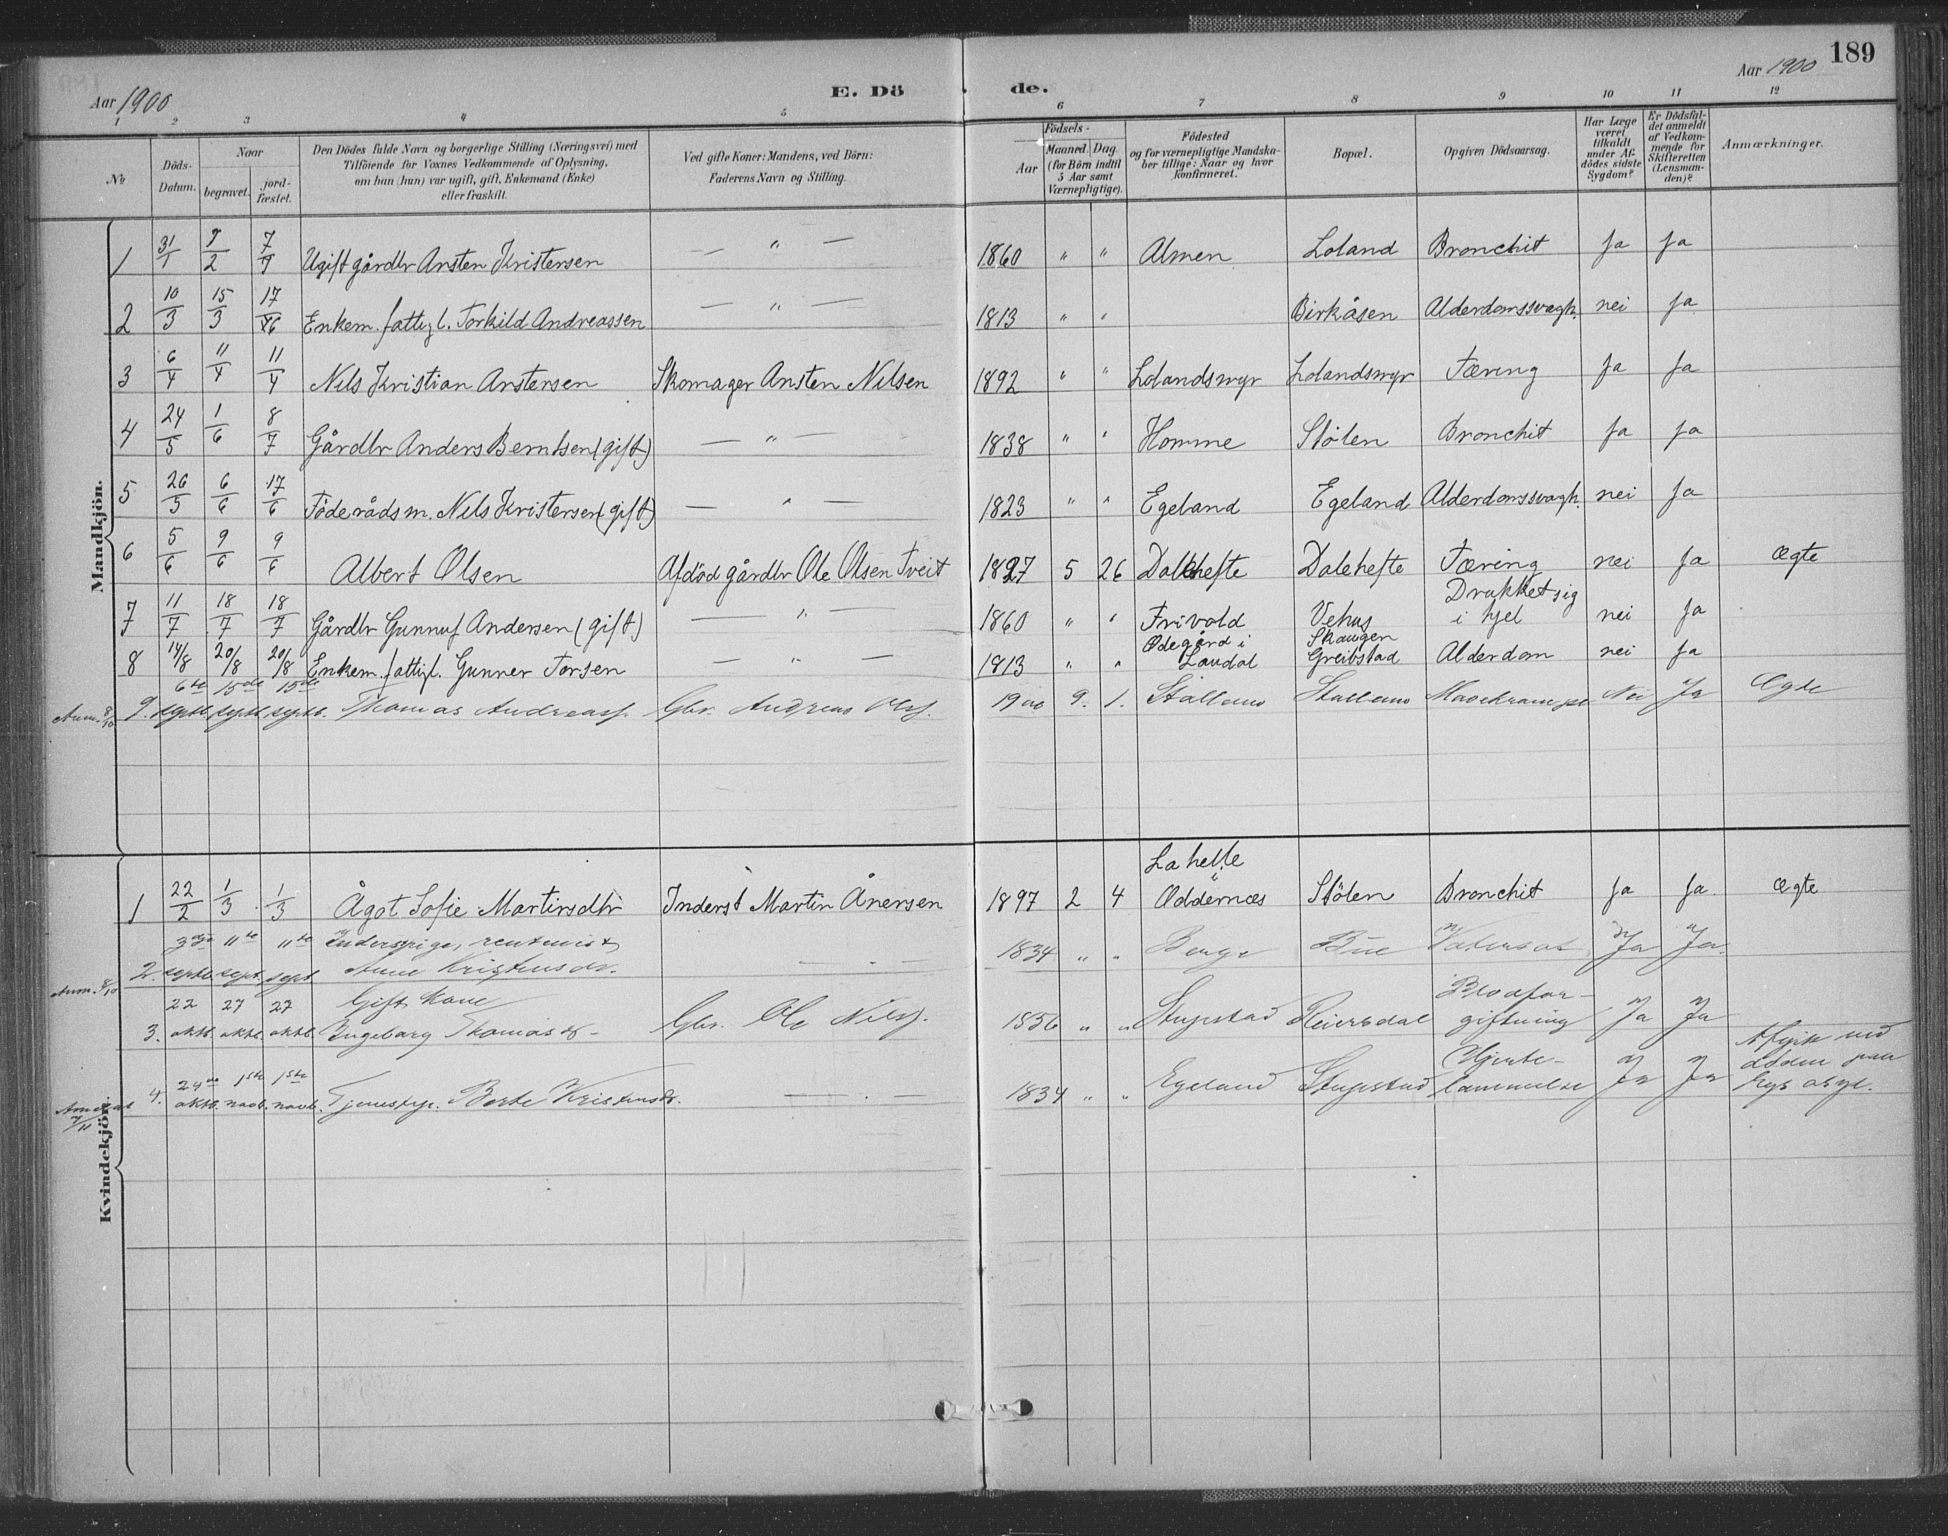 189
Aar 1900
E. Dö de.
Aar 1900
1 2 3 4 5 6 7 8 9 10 11 12
No
Döds-Datum.
Naar
begravet.
jord-fæstet.
Den Dödes fulde Navn og borgerlige Stilling (Næringsvei) med
Tilföiende for Voxnes Vedkommende af Oplysning,
om han (hun) var ugift, gift, Enkemand (Enke)
eller fraskilt.
Ved gifte Koner: Mandens, ved Börn:
Faderens Navn og Stilling.
Födsels-
Aar
Maaned. Dag.
(for Börn indtil
5 Aar samt
Værnepligtige).
Födested
og for værnepligtige Mandska-
ber tillige: Naar og hvor
konfirmeret.
Bopæl.
Opgiven Dödsaarsag.
Har Læge
været
tilkaldt
under Af-
dödes sidste
Sygdom?
Er Dödsfal-
det anmeldt
af Vedkom-
mende for
Skifteretten
(Lensman-
den)?
Anmærkninger.
Mandkjön.
1 31/1 9/2 7/7 Ugift gårdbr Ansten Kristersen — " — 1860 " " Almen Loland Bronchit Ja Ja
2 10/3 15/3 17/6 Enkem. fattigl. Torkild Andreassen — " — 1813 " " Birkåsen Alderdomssvagh. nei Ja
3 6/4 11/4 11/4 Nils Kristian Anstensen Skomager Ansten Nilsen 1892 " " Lolandsmyr Lolandsmyr Tæring Ja Ja
4 24/5 1/6 8/7 Gårdbr Anders Berntsen (gift) — " — 1838 " " Homme Stølen Bronchit Ja Ja
5 26/5 6/6 17/6 Föderådsm. Nils Kristensen (gift) — " — 1823 " " Egeland Egeland Alderdomssvagh. nei Ja
6 5/6 9/6 9/6 Albert Olsen Afdöd gårdbr Ole Olsen Tveit 1897 5 26 Dalehefte Dalehefte Tæring nei Ja Ægte
7 11/7 18/7 18/7 Gårdbr Gunnuf Andersen (gift) — " — 1860 " " Frivold Vehus Drukket sig
i hjel nei Ja
8 14/8 20/8 20/8 Enkem. fattigl. Gunner Torsen — " — 1813 " " Ødegård i
Laudal Skaugen
Greibstad Alderdom nei Ja
Anm. 8/10 9. 6te septb. 15de septb. 15de septb. Thomas Andreass. Gbr. Andreas Ols. 1900 9. 1. Stallemo Stallemo Mavekrampe Nei Ja Ægte
Kvindekjön.
1 22/2 1/3 1/3 Ågot Sofie Martinsdtr Inderst Martin Ånersen 1897 2 4 Lahelle
i
Oddernæs Stölen Bronchit Ja Ja Ægte
Anm. 8/10 2. 3die septb. 11te sept. 11te sept. Inderstpige,
Anne Kristensdr. — 1834 " " Berge Bue Vatersot Ja Ja
3. 22 oktb. 27 oktb. 27 oktb. Gift Kone
Ingeborg Thomasdr. Gbr. Ole Nils. 1856 " " Stupstad Reiersdal Blodfor-
giftning Ja Ja
Anmeldt 7/11 4. 24de oktb. 1ste novb. 1ste novb. Tjenestpge. Berte Kristensdr. — 1834 " " Egeland Stupstad Hjerte-
lammelse Ja Ja Afgik ved
Døden paa